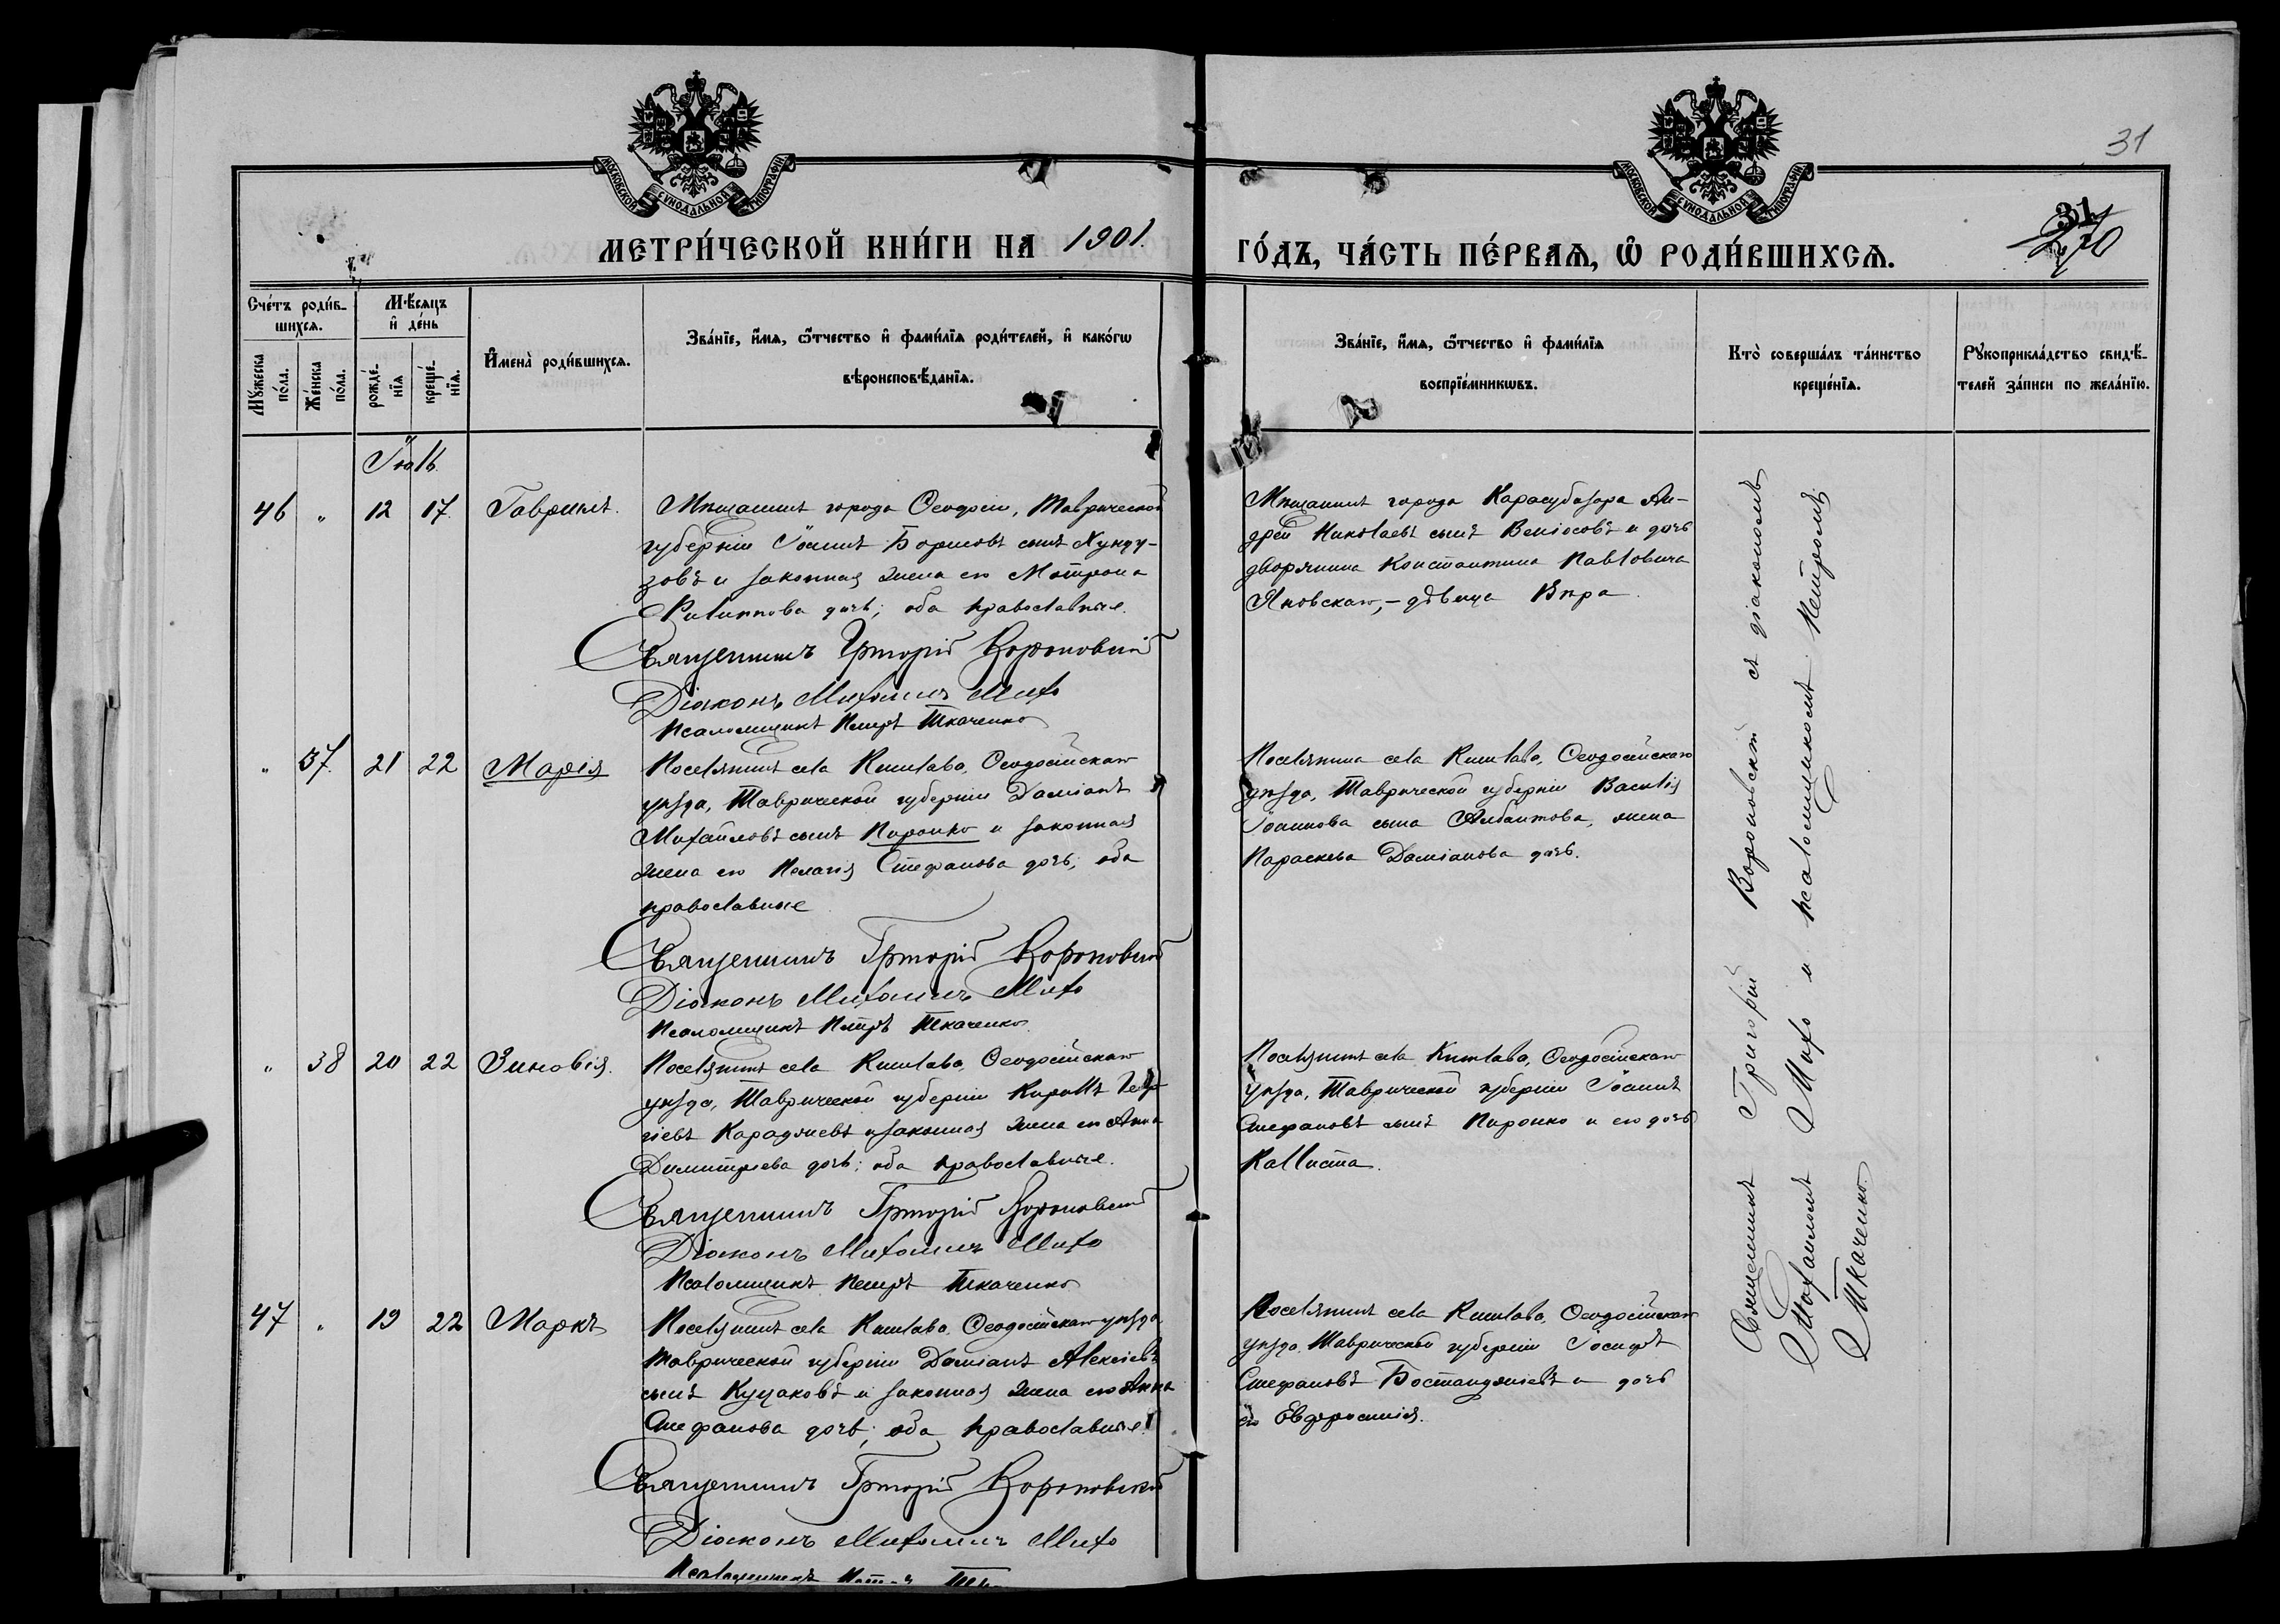 МОСКОВСКОЙ СѴНОДАЛЬНОЙ ТИПОГРАФІИ
МОСКОВСКОЙ СѴНОДАЛЬНОЙ ТИПОГРАФІИ
31
31
МЕТРИ́ЧЕСКОЙ КНИ́ГИ НА 1901. ГО́ДЪ, ЧА́СТЬ ПЕ́РВАѦ, Ѡ҆ РОДИ́ВШИХСѦ.
Сче́тъ роди́в-
шихсѧ.
Мꙋ́жеска по́ла.
Же́нска по́ла.
Мѣ́сѧцъ
и҆ де́нь
рожде́-
нїѧ
креще́-
нїѧ.
И҆мена̀ роди́вшихсѧ.
Зва́нїе, и҆́мѧ, ѻ҆́тчество и҆ фами́лїѧ роди́телей, и҆ како́гѡ
вѣроисповѣ́данїѧ.
Зва́нїе, и҆́мѧ, ѻ҆́тчество и҆ фами́лїѧ
воспрїе́мникѡвъ.
Кто̀ соверша́лъ та́инство
креще́нїѧ.
Рꙋкоприкла́дство свидѣ́-
телей за́писи по жела́нїю.
Іюль
46 „ 12 17 Гавриилъ.
Мѣщанинъ города Ѳеодосіи, Таврической
губерніи Іоаннъ Борисовъ сынъ Кунду-
зовъ и законная жена его Матрона
Филиппова дочь; оба православные.
Священникъ Григорій Вороновскій
Діаконъ Михаилъ Михо
Псаломщикъ Петръ Ткаченко
Мѣщанинъ города Карасубазара Ан-
дрей Николаевъ сынъ и дочь
дворянина Константина Павловича
Яновскаго, – дѣвица Вѣра.
„ 37. 21 22 Марія
Поселянинъ села Кишлава, Ѳеодосійскаго
уѣзда, Таврической губерніи Даміанъ
Михайловъ сынъ Пиронко и законная
жена его Пелагія Стефанова дочь; оба
православные
Священникъ Григорій Вороновскій
Діаконъ Михаилъ Михо
Псаломщикъ Петръ Ткаченко
Поселянина села Кишлава, Ѳеодосійскаго
уѣзда, Таврической губерніи Василія
Іоаннова сына Албантова, жена
Параскева Даміанова дочь.
„ 38 20 22 Зиновія.
Поселянинъ села Кишлава, Ѳеодосійскаго
уѣзда, Таврической губерніи Кириллъ Геор-
гіевъ Караджіевъ и законная жена его Анна
Димитріева дочь; оба православные.
Священникъ Григорій Вороновскій
Діаконъ Михаилъ Михо
Псаломщикъ Петръ Ткаченко
Поселянинъ села Кишлава, Ѳеодосійскаго
уѣзда, Таврической губерніи Іоаннъ
Стефановъ сынъ Пиронко и его дочь
Каллиста.
47 „ 19 22 Маркъ
Поселянинъ села Кишлава, Ѳеодосійскаго уѣзда
Таврической губерніи Даміанъ Алексіевъ
сынъ Куцаковъ и законная жена его Анна
Стефанова дочь; оба православные.
Священникъ Григорій Вороновскій
Діаконъ Михаилъ Михо
Псаломщикъ Петръ
Поселянинъ села Кишлава, Ѳеодосійскаго
уѣзда, Таврической губерніи Іосифъ
Стефановъ Бостанджіевъ и дочь
его Евфросинія.
Священникъ Григорій Вороновскій съ діакономъ
Михаиломъ Михо и псаломщикомъ Петромъ
Ткаченко.